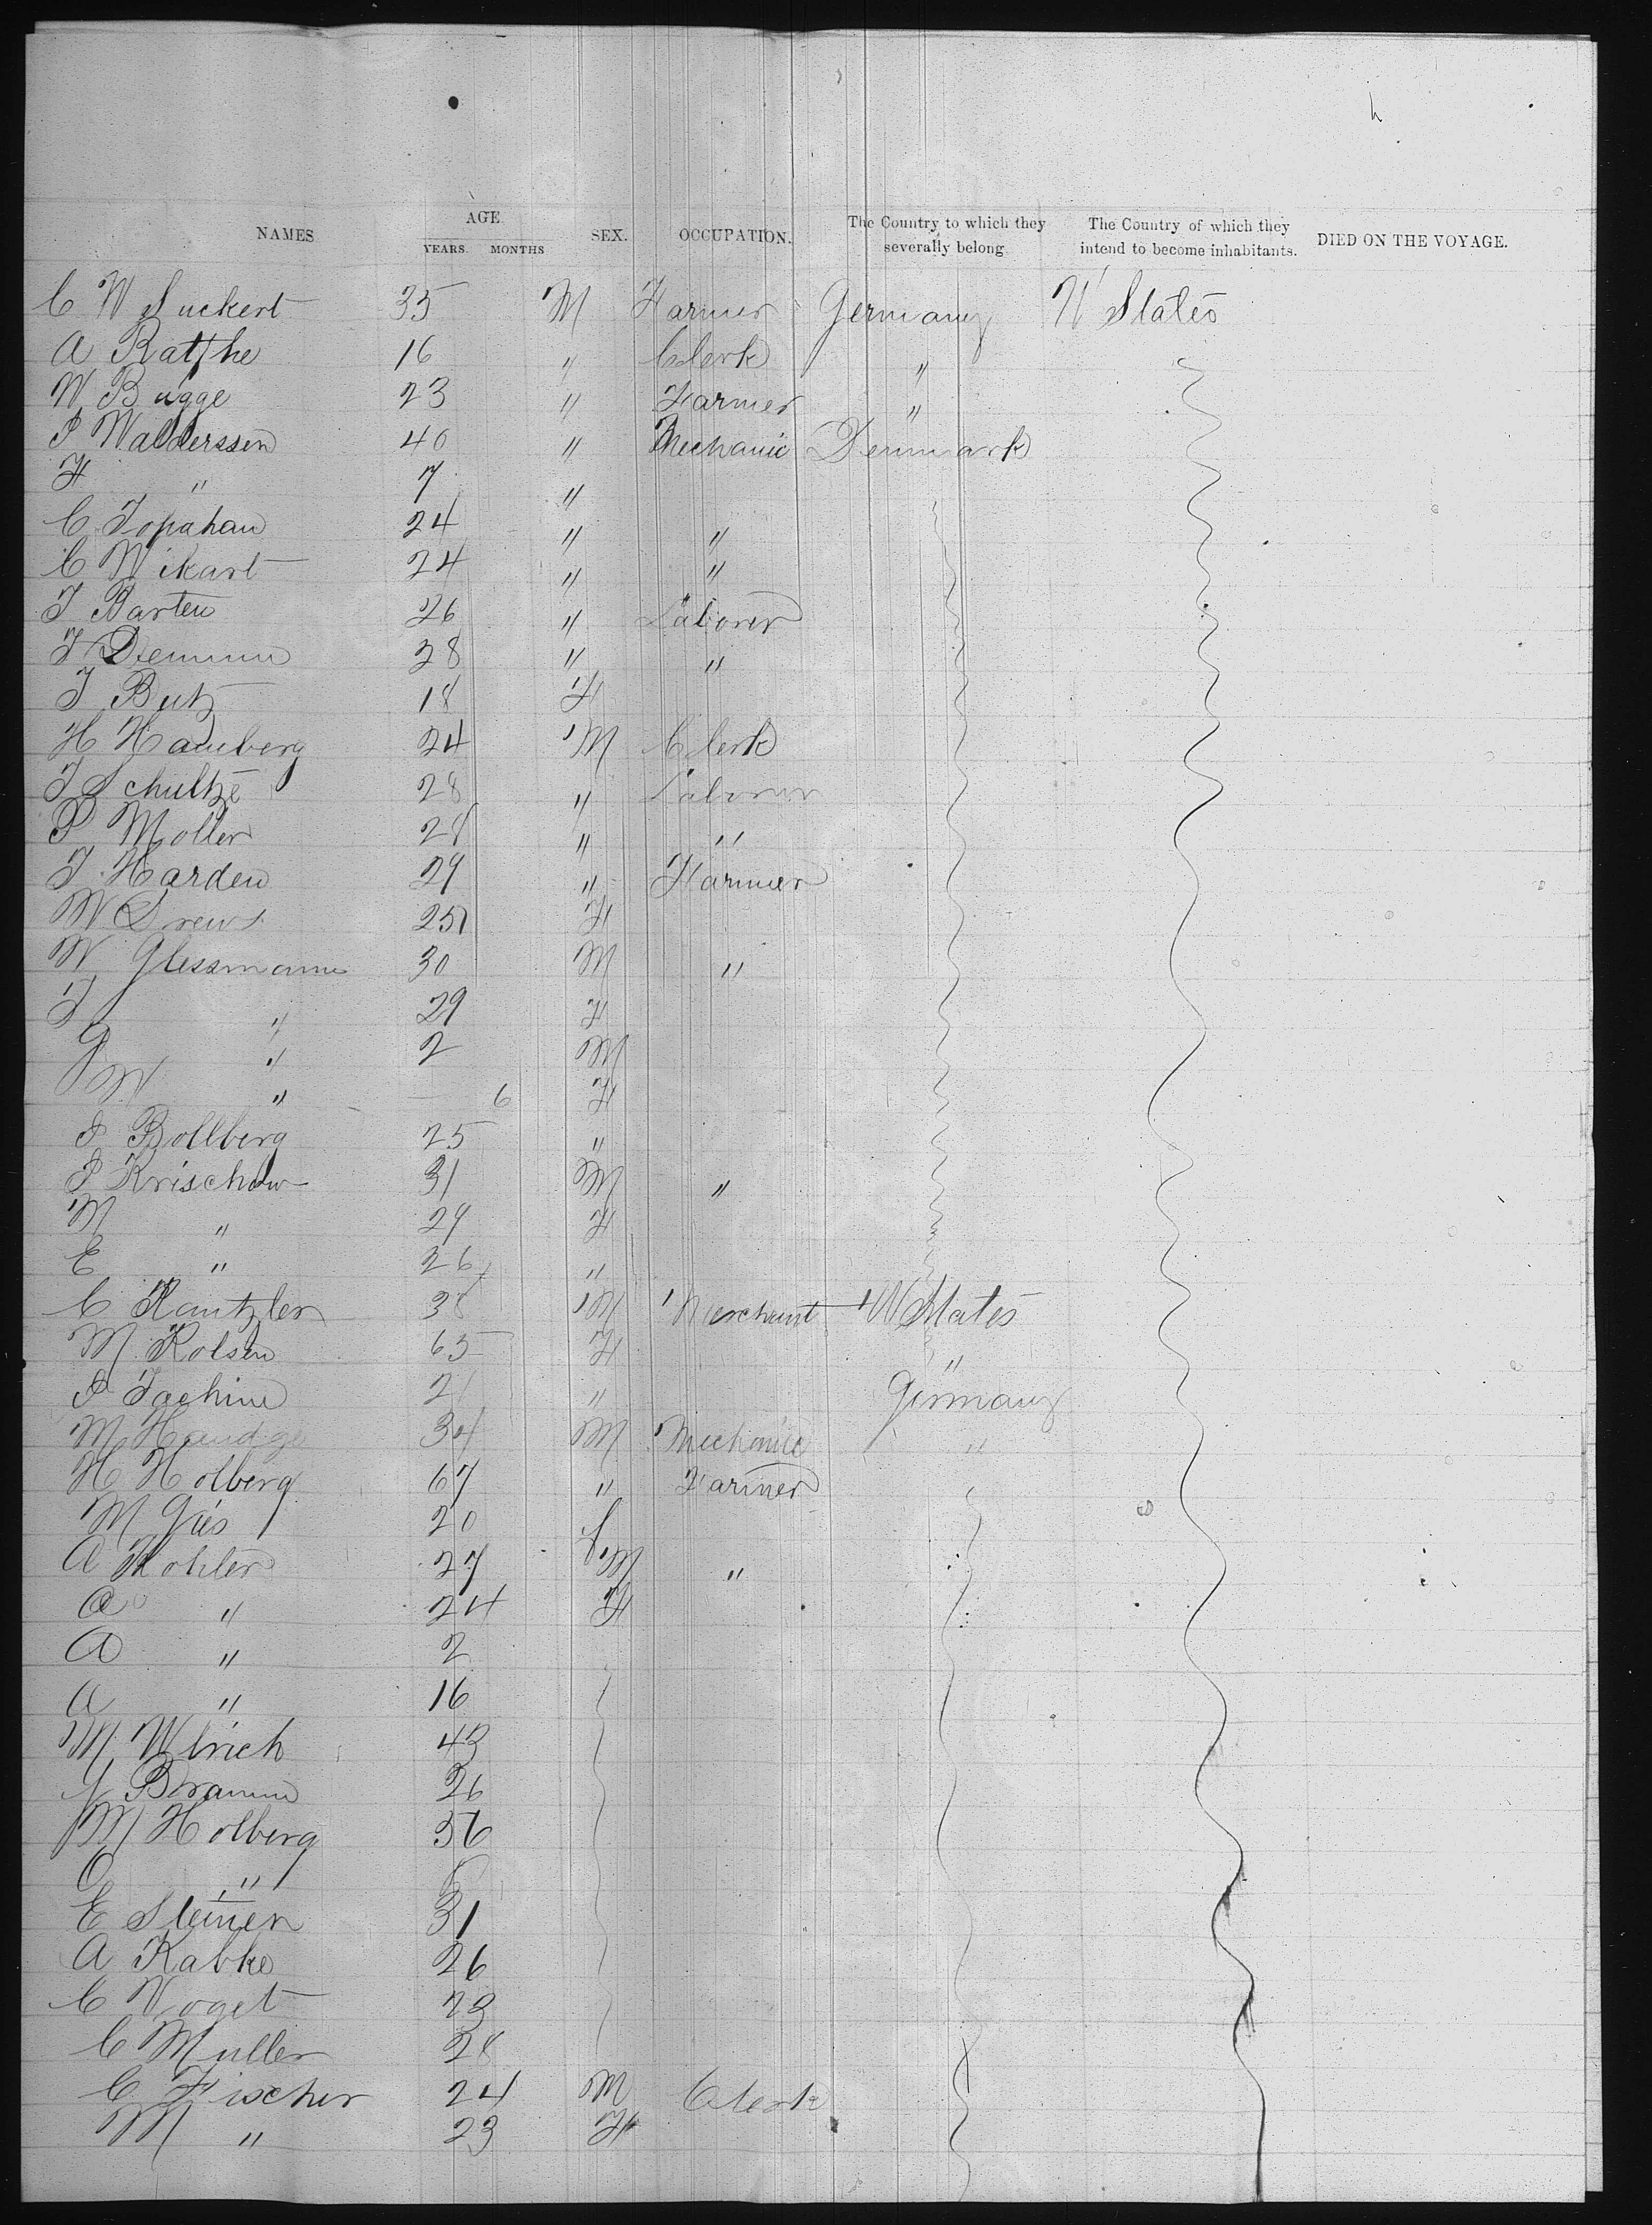 h
NAMES AGE. YEARS. MONTHS SEX. OCCUPATION. The Country to which they severally belong. The Country of which they intend to become inhabitants. DIED ON THE VOYAGE.
C W Suckert 35 M Farmer Germany U States
A Rathe 16 " Clerk "
W Bugge 23 " Farmer "
P Walderssen 40 " Mechanic Denmark
F " 7 "
C Topahan 24 " "
C Wikart 24 " "
J Barten 26 " Laborer
J 28 " "
J Butz 18 F
H Hamberg 24 M Clerk
J Schultze 28 " Laborer
P Moller 28 " "
J Harden 29 " Farmer
W Drews 25 F
W Glessmann 30 M "
J " 29 F
G " 2 M
W " — 6 F
S Bollberg 25 "
P Krischow 31 M "
M " 29 F
E " 26 "
C Kantzler 38 M Merchant U States
M Rolsen 65 F "
P Jachine 21 " Germany
M 34 M Mechanic "
H Holberg 67 " Farmer
M Gies 20 f
A Kohler 27 M "
A " 24 F
A " 2
A " 16
M Ulrich 43
J Bramm 26
M Holberg 36
O "
E Steiner 31
A Kabke 26
C Voget 23
C Muller 28
C Fischer 24 M Clerk
M " 23 F